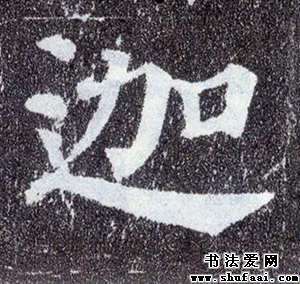 迦
书法爱网
www.shufaai.com